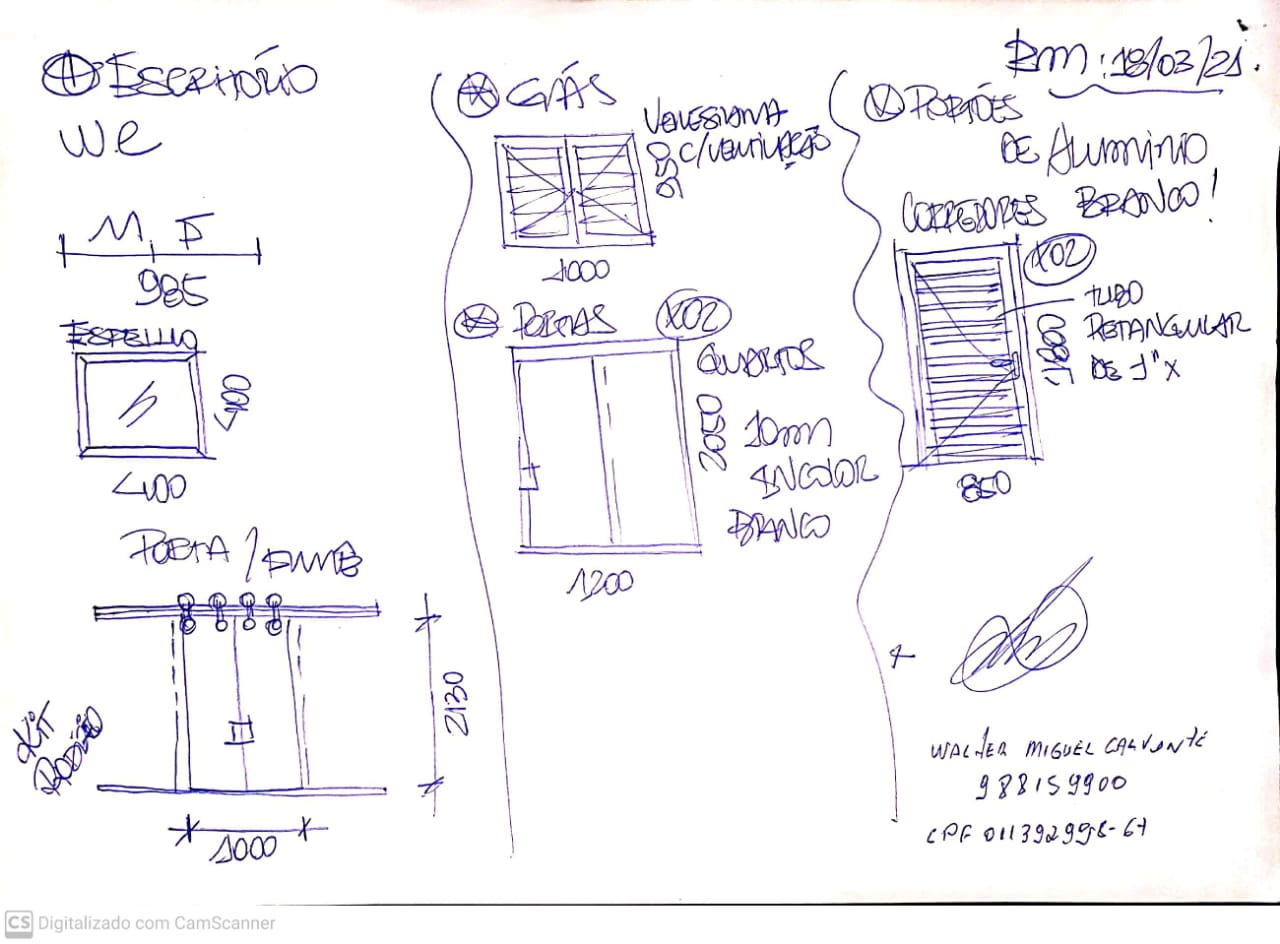 ESCRITÓRIO
WC
M F
985
ESPELHO
400
400
PORTA /
KIT
2130
1000
GÁS
VENEZIANA
C/VENTILAÇÃO
550
1000
PORTAS X02
QUARTOS
2050
10mm
INCOLOR
BRANCO
1200
RM: 18/03/21.
PORTÕES
DE ALUMINIO
CORREDORES BRANCO!
X02
TUBO
RETANGULAR
DE 1" X
1800
850
WALTER MIGUEL CALVONTE
988159900
CPF 011392998-67
CS Digitalizado com CamScanner